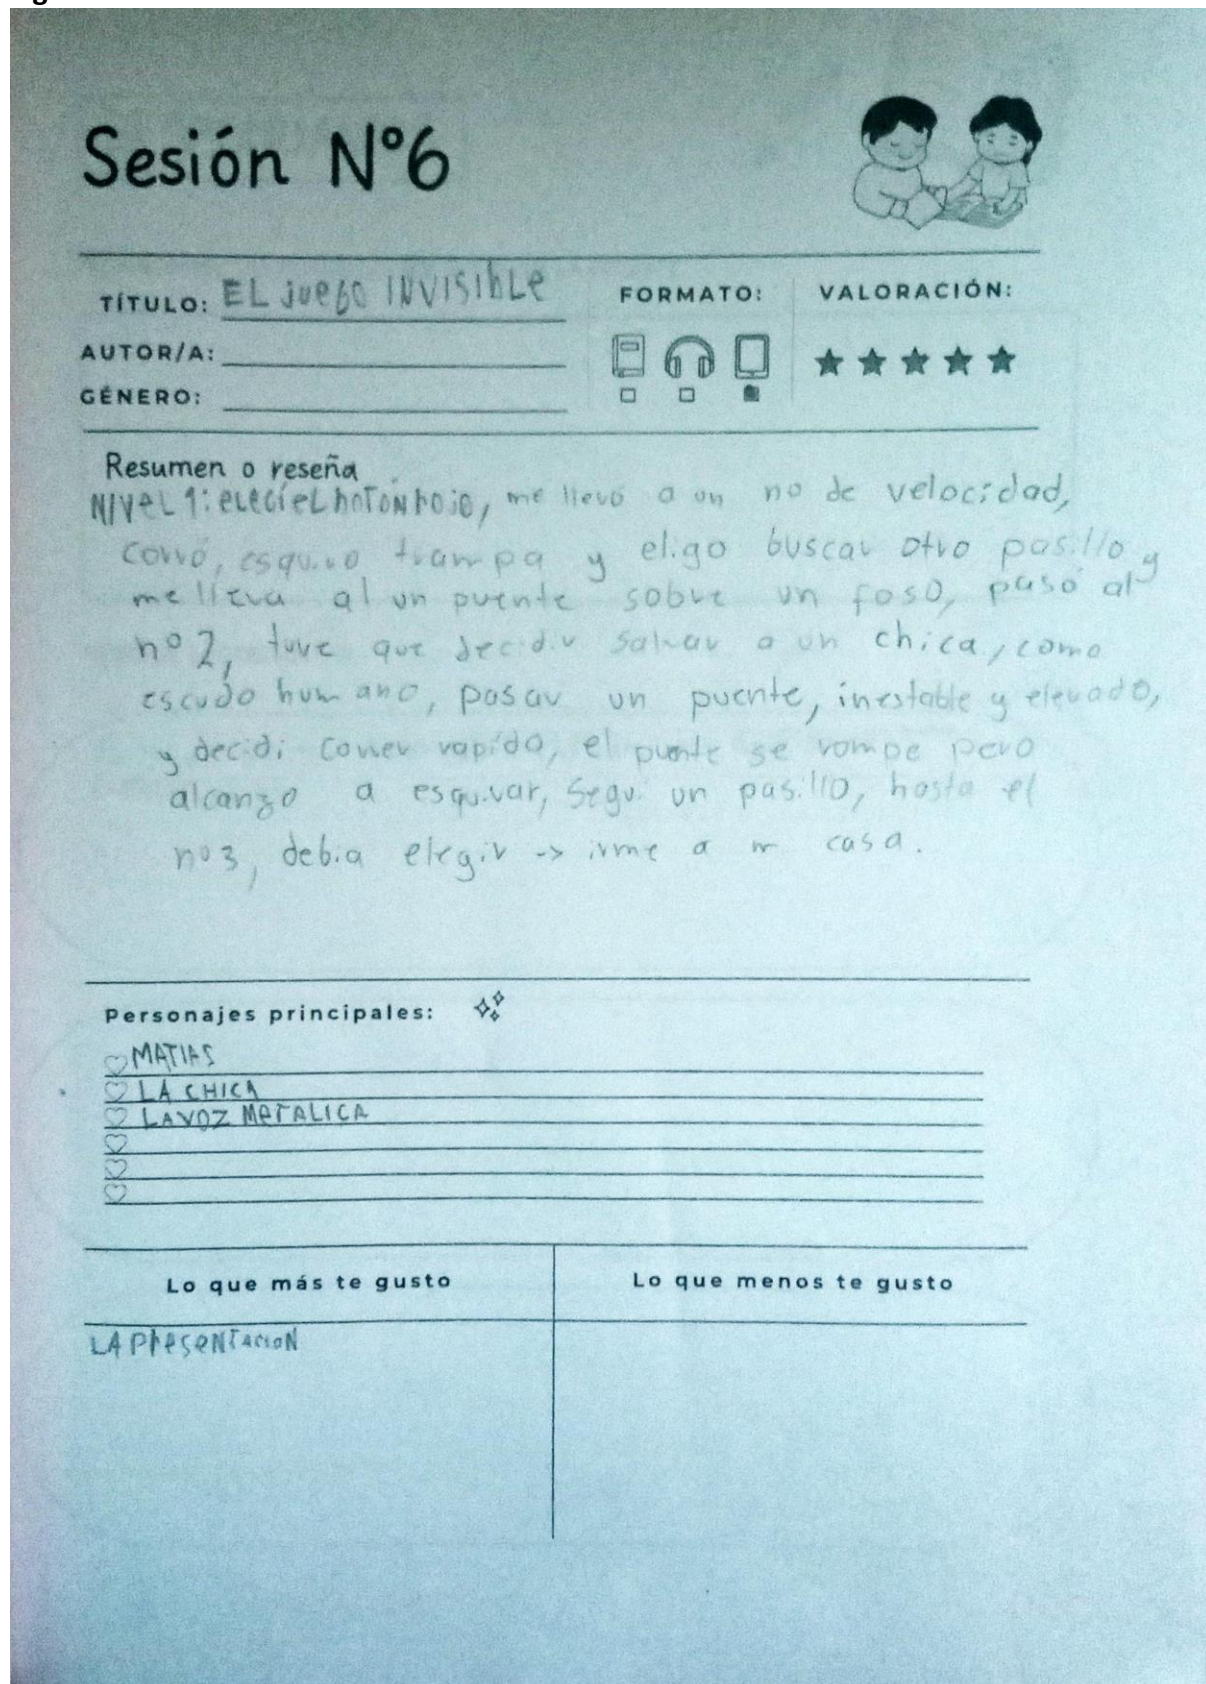 Sesión N°6
TÍTULO: EL juego INVISIBLE
FORMATO:
VALORACIÓN:
AUTOR/A:
GÉNERO:
Resumen o reseña
NIVEL 1: elecí el botón rojo, me llevó a un no de velocidad,
corro, esquivo trampa y eligo buscar otro pasillo y
me lleva al un puente sobre un foso, paso al
nº 2, tuve que decidir salvar a un chica, como
escudo humano, pasar un puente, inestable y elevado,
y decidi correr rapido, el puente se rompe pero
alcanzo a esquivar, Segui un pasillo, hasta el
nº3, debia elegir -> irme a m casa.
Personajes principales:
MATIAS
LA CHICA
LA VOZ METALICA
Lo que más te gusto
Lo que menos te gusto
LA PresenTacion